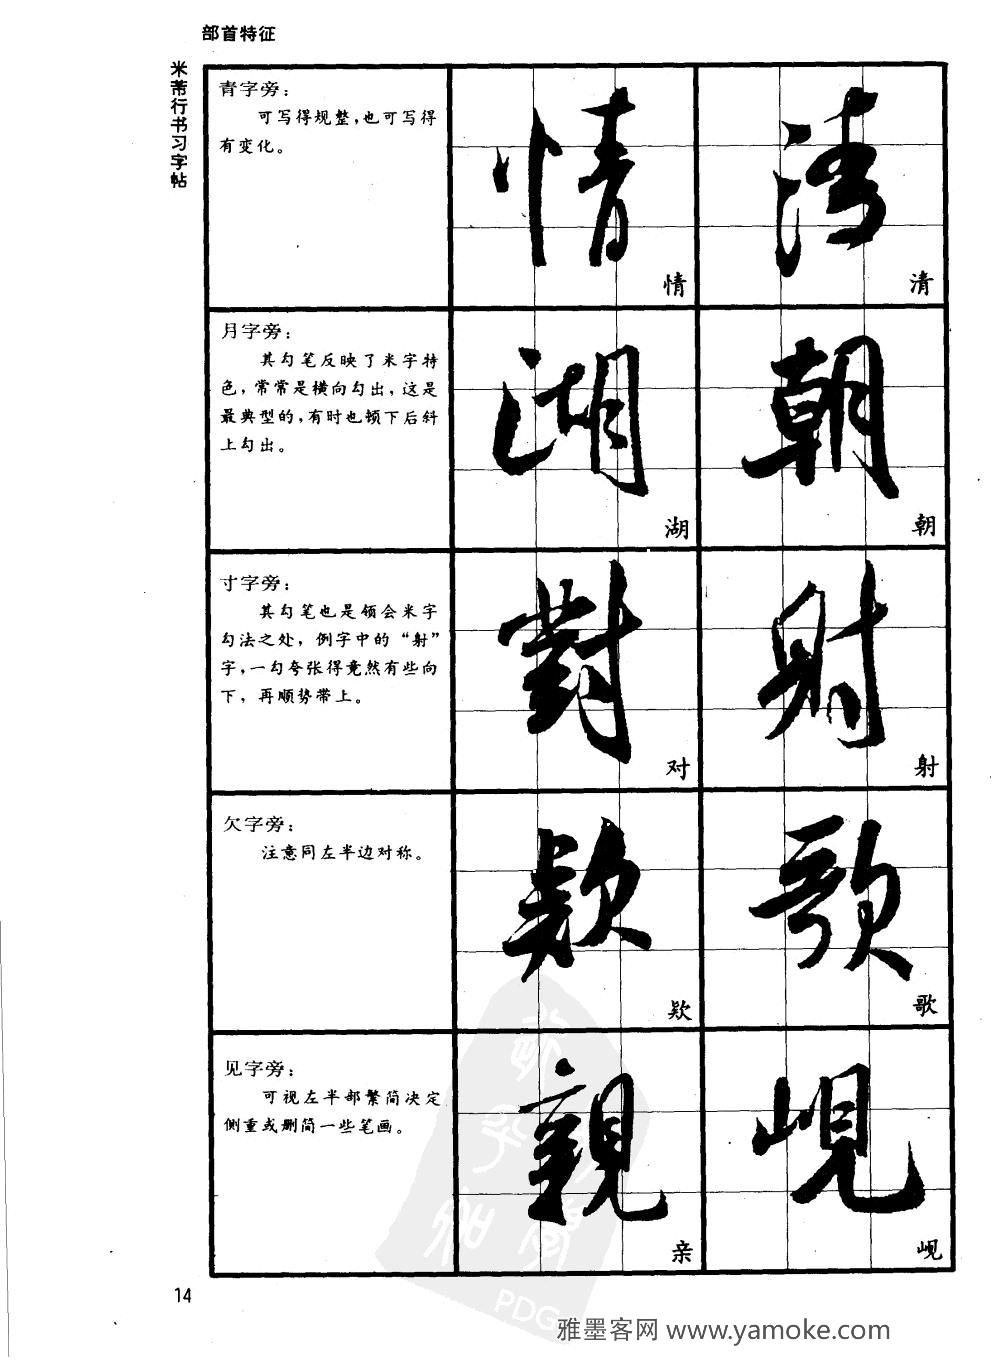 部首特征
米芾行书习字帖
青字旁：
可写得规整，也可写得
有变化。
情
清
情
清
月字旁：
其勾笔反映了米字特
色，常常是横向勾出，这是
最典型的，有时也顿下后斜
上勾出。
湖
朝
湖
朝
寸字旁：
其勾笔也是领会米字
勾法之处，例字中的“射”
字，一勾夸张得竟然有些向
下，再顺势带上。
對
射
对
射
欠字旁：
注意同左半边对称。
欵
歌
欵
歌
见字旁：
可视左半部繁简决定
侧重或删简一些笔画。
親
峴
亲
岘
14
PDG
雅墨客网 www.yamoke.com